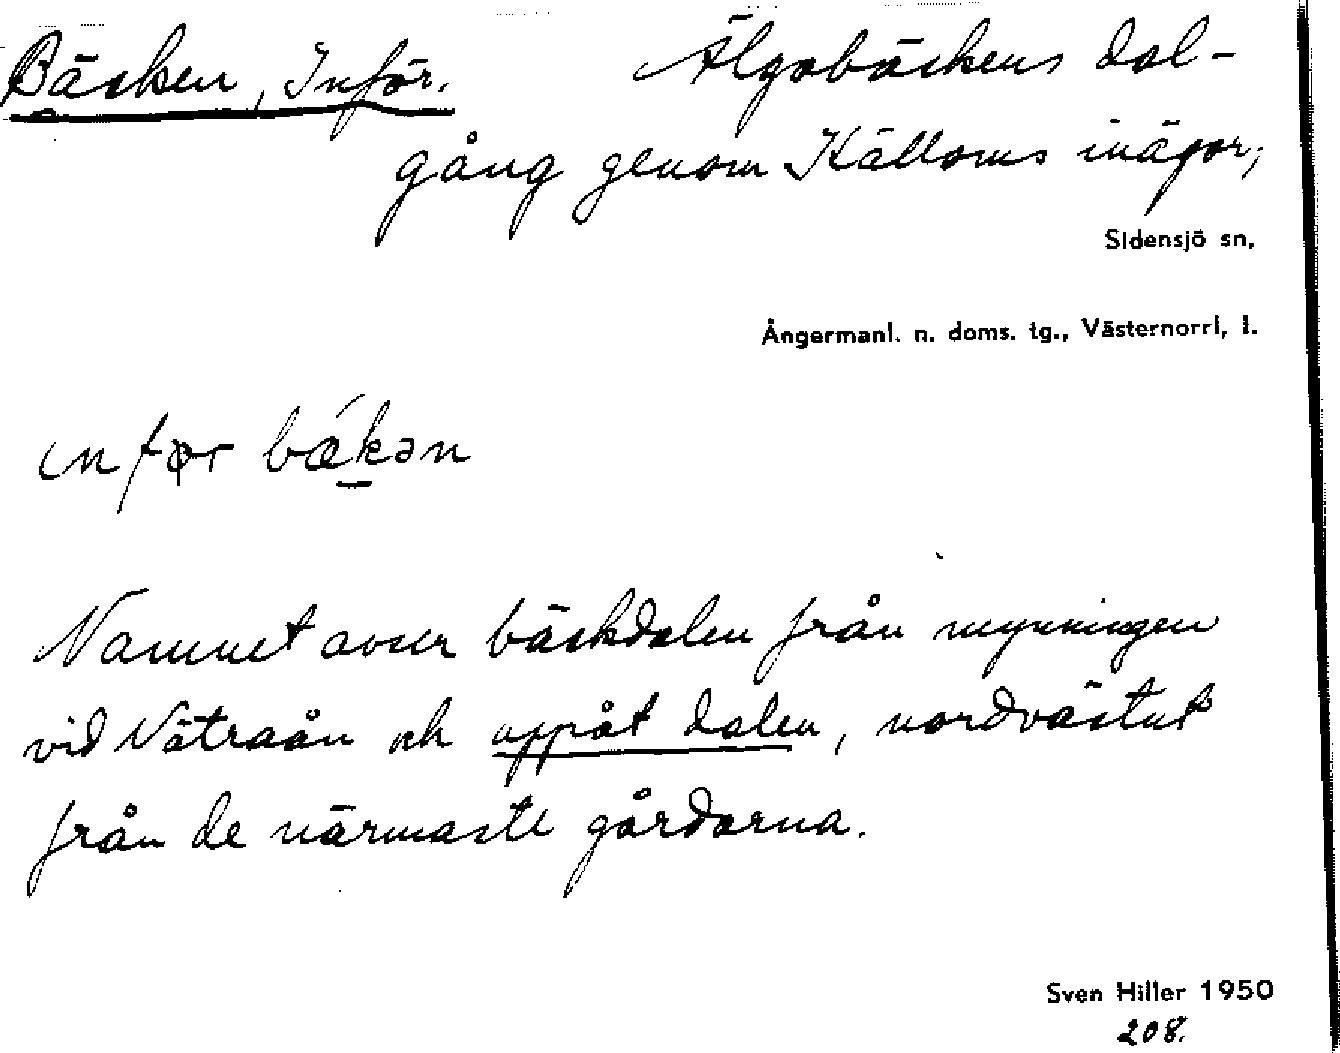 Bäcken, Inför. Älgabäckens dal-
gång genom Källoms inägor;
Sidensjö sn,
Ångermanl. n. doms. tg., Västernorrl, l.
ɩnfør bǽkən
Namnet avser bäckdalen från mynningen
vid Nätraån och uppåt dalen, nordvästut
från de närmaste gårdarna.
Sven Hiller 1950
208.